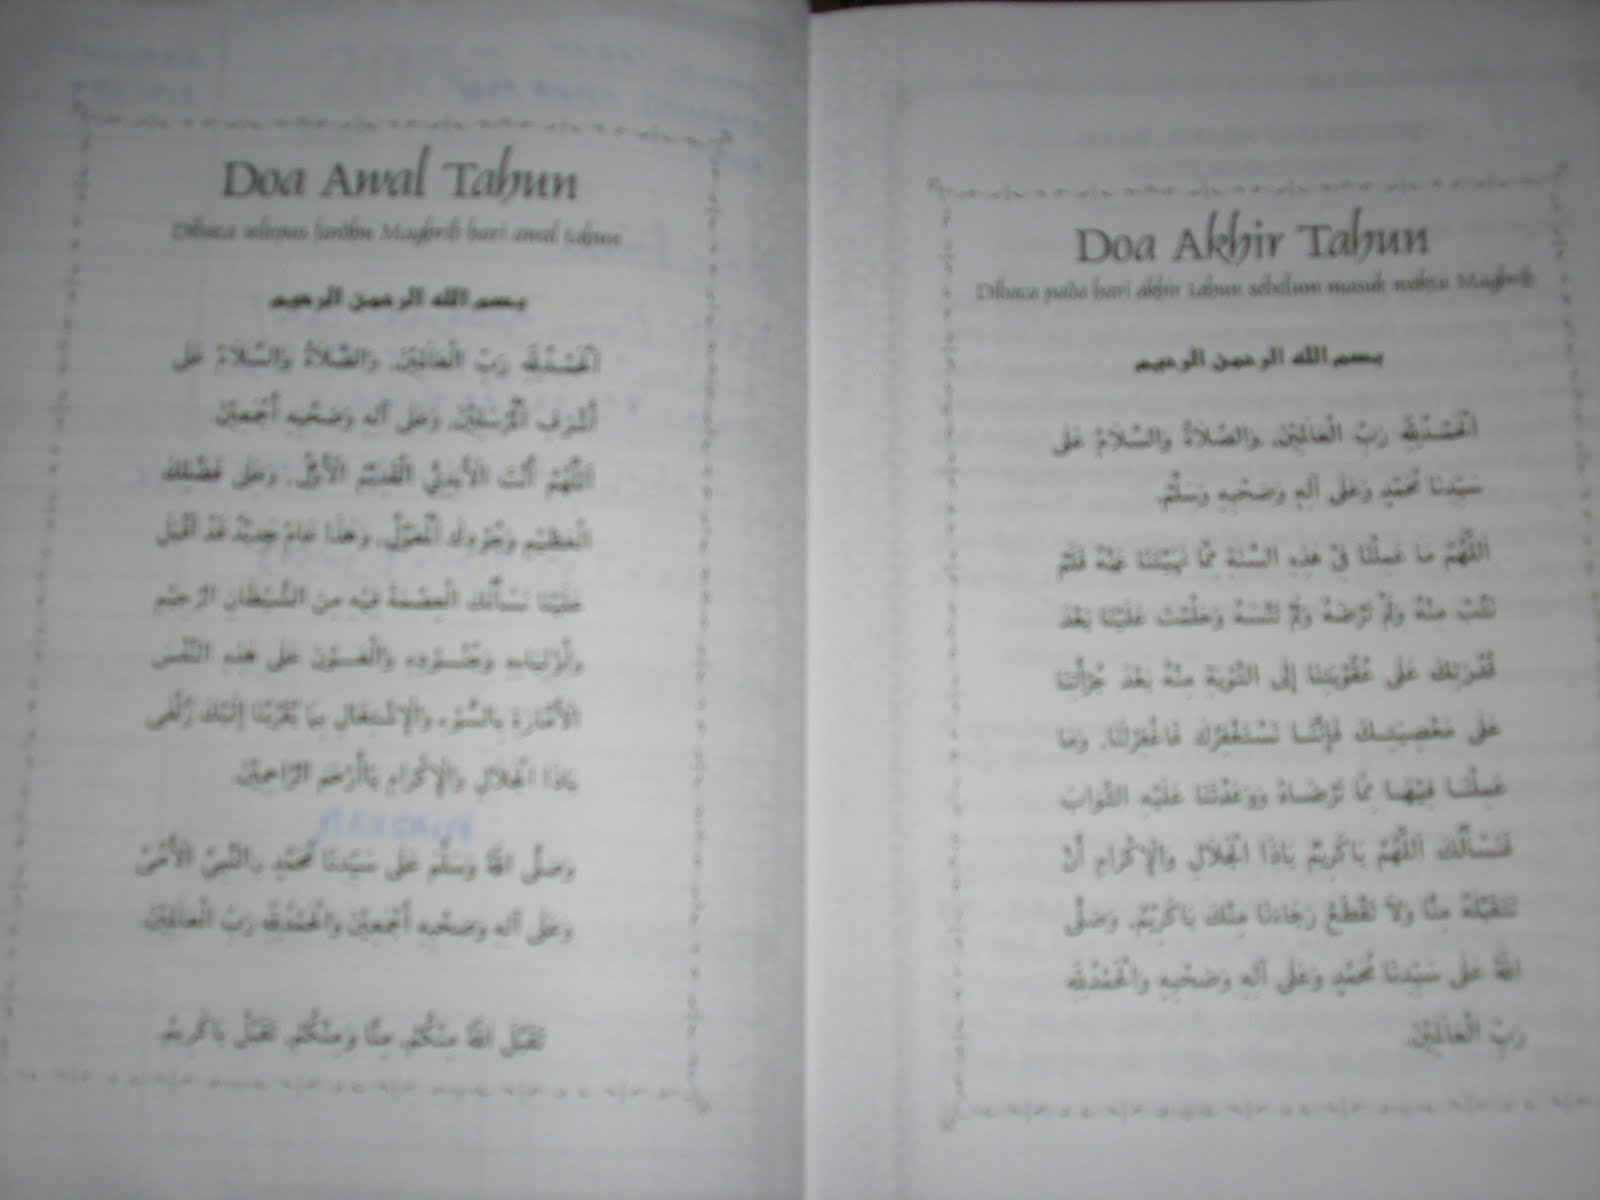 Doa Awal Tahun
Dibaca selepas fardhu Maghrib hari awal tahun
بسم الله الرحمن الرحيم
اَلْحَمْدُ لِلّٰهِ رَبِّ الْعَالَمِيْنَ، وَالصَّلَاةُ وَالسَّلَامُ عَلَى
أَشْرَفِ الْمُرْسَلِيْنَ، وَعَلَى آلِهِ وَصَحْبِهِ أَجْمَعِيْنَ.
اَللّٰهُمَّ أَنْتَ الْأَبَدِيُّ الْقَدِيْمُ الْأَوَّلُ، وَعَلَى فَضْلِكَ
الْعَظِيْمِ وَجُوْدِكَ الْمُعَوَّلُ، وَهَذَا عَامٌ جَدِيْدٌ قَدْ أَقْبَلَ
عَلَيْنَا نَسْأَلُكَ الْعِصْمَةَ فِيْهِ مِنَ الشَّيْطَانِ الرَّجِيْمِ
وَأَوْلِيَاءِهِ وَجُنُوْدِهِ، وَالْعَوْنَ عَلَى هَذِهِ النَّفْسِ
الْأَمَّارَةِ بِالسُّوْءِ، وَالْإِشْتِغَالِ بِمَا يُقَرِّبُنَا إِلَيْكَ زُلْفَى
يَاذَا الْجَلَالِ وَالْإِكْرَامِ يَاأَرْحَمَ الرَّاحِمِيْنَ.
وَصَلَّى اللهُ وَسَلَّمَ عَلَى سَيِّدِنَا مُحَمَّدٍ النَّبِيِّ الْأُمِّيِّ
وَعَلَى آلِهِ وَصَحْبِهِ أَجْمَعِيْنَ وَالْحَمْدُ لِلّٰهِ رَبِّ الْعَالَمِيْنَ.
تَقَبَّلَ اللهُ مِنْكُمْ، مِنَّا وَمِنْكُمْ، تَقَبَّلْ يَاكَرِيْمُ
Doa Akhir Tahun
Dibaca pada hari akhir tahun sebelum masuk waktu Maghrib
بسم الله الرحمن الرحيم
اَلْحَمْدُ لِلّٰهِ رَبِّ الْعَالَمِيْنَ، وَالصَّلَاةُ وَالسَّلَامُ عَلَى
سَيِّدِنَا مُحَمَّدٍ وَعَلَى آلِهِ وَصَحْبِهِ وَسَلَّمَ.
اَللّٰهُمَّ مَا عَمِلْنَا فِيْ هَذِهِ السَّنَةِ مِمَّا نَهَيْتَنَا عَنْهُ فَلَمْ
نَتُبْ مِنْهُ وَلَمْ تَرْضَهُ وَلَمْ تَنْسَهُ وَحَلُمْتَ عَلَيْنَا بَعْدَ
قُدْرَتِكَ عَلَى عُقُوْبَتِنَا إِلَى التَّوْبَةِ مِنْهُ بَعْدَ جُرْأَتِنَا
عَلَى مَعْصِيَتِكَ فَإِنَّنَا نَسْتَغْفِرُكَ فَاغْفِرْلَنَا، وَمَا
عَمِلْنَا فِيْهَا مِمَّا تَرْضَاهُ وَوَعَدْتَنَا عَلَيْهِ الثَّوَابَ
فَنَسْأَلُكَ اَللّٰهُمَّ يَاكَرِيْمُ يَاذَا الْجَلَالِ وَالْإِكْرَامِ أَنْ
تَتَقَبَّلَهُ مِنَّا وَلَا تَقْطَعْ رَجَاءَنَا مِنْكَ يَاكَرِيْمُ، وَصَلَّى
اللهُ عَلَى سَيِّدِنَا مُحَمَّدٍ وَعَلَى آلِهِ وَصَحْبِهِ وَالْحَمْدُ لِلّٰهِ
رَبِّ الْعَالَمِيْنَ.